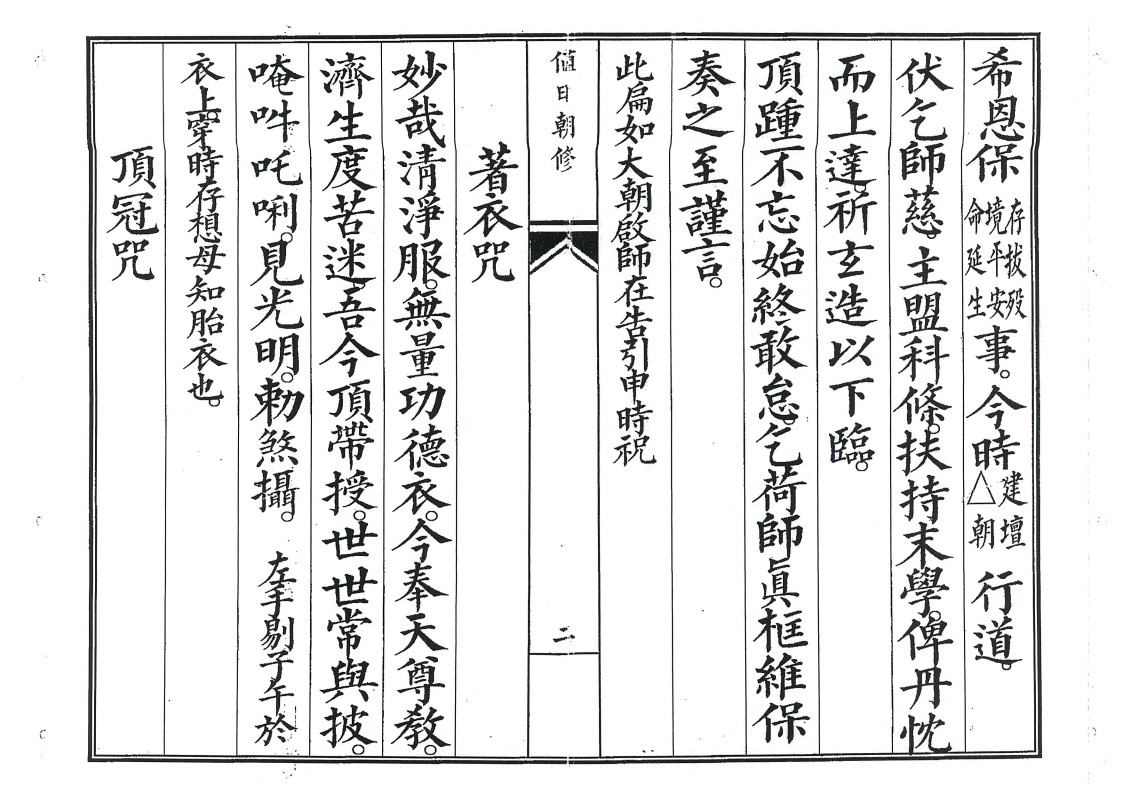 希恩保存拔歿境平安命延生事。今時建壇△朝行道。
伏乞師慈。主盟科條。扶持末學。俾丹忱
而上達。祈玄造以下臨。
頂踵不忘始終敢怠。乞荷師眞框維保
奏之至謹言。
此扁如大朝啟師在告引申時祝
値日朝修
二
著衣咒
妙哉清淨服。無量功德衣。今奉天尊教。
濟生度苦迷。吾今頂帶授。世世常與披。
唵吽吒唎。見光明。勅煞攝。左手剔子午於
衣上。穿時存想母知胎衣也。
頂冠咒